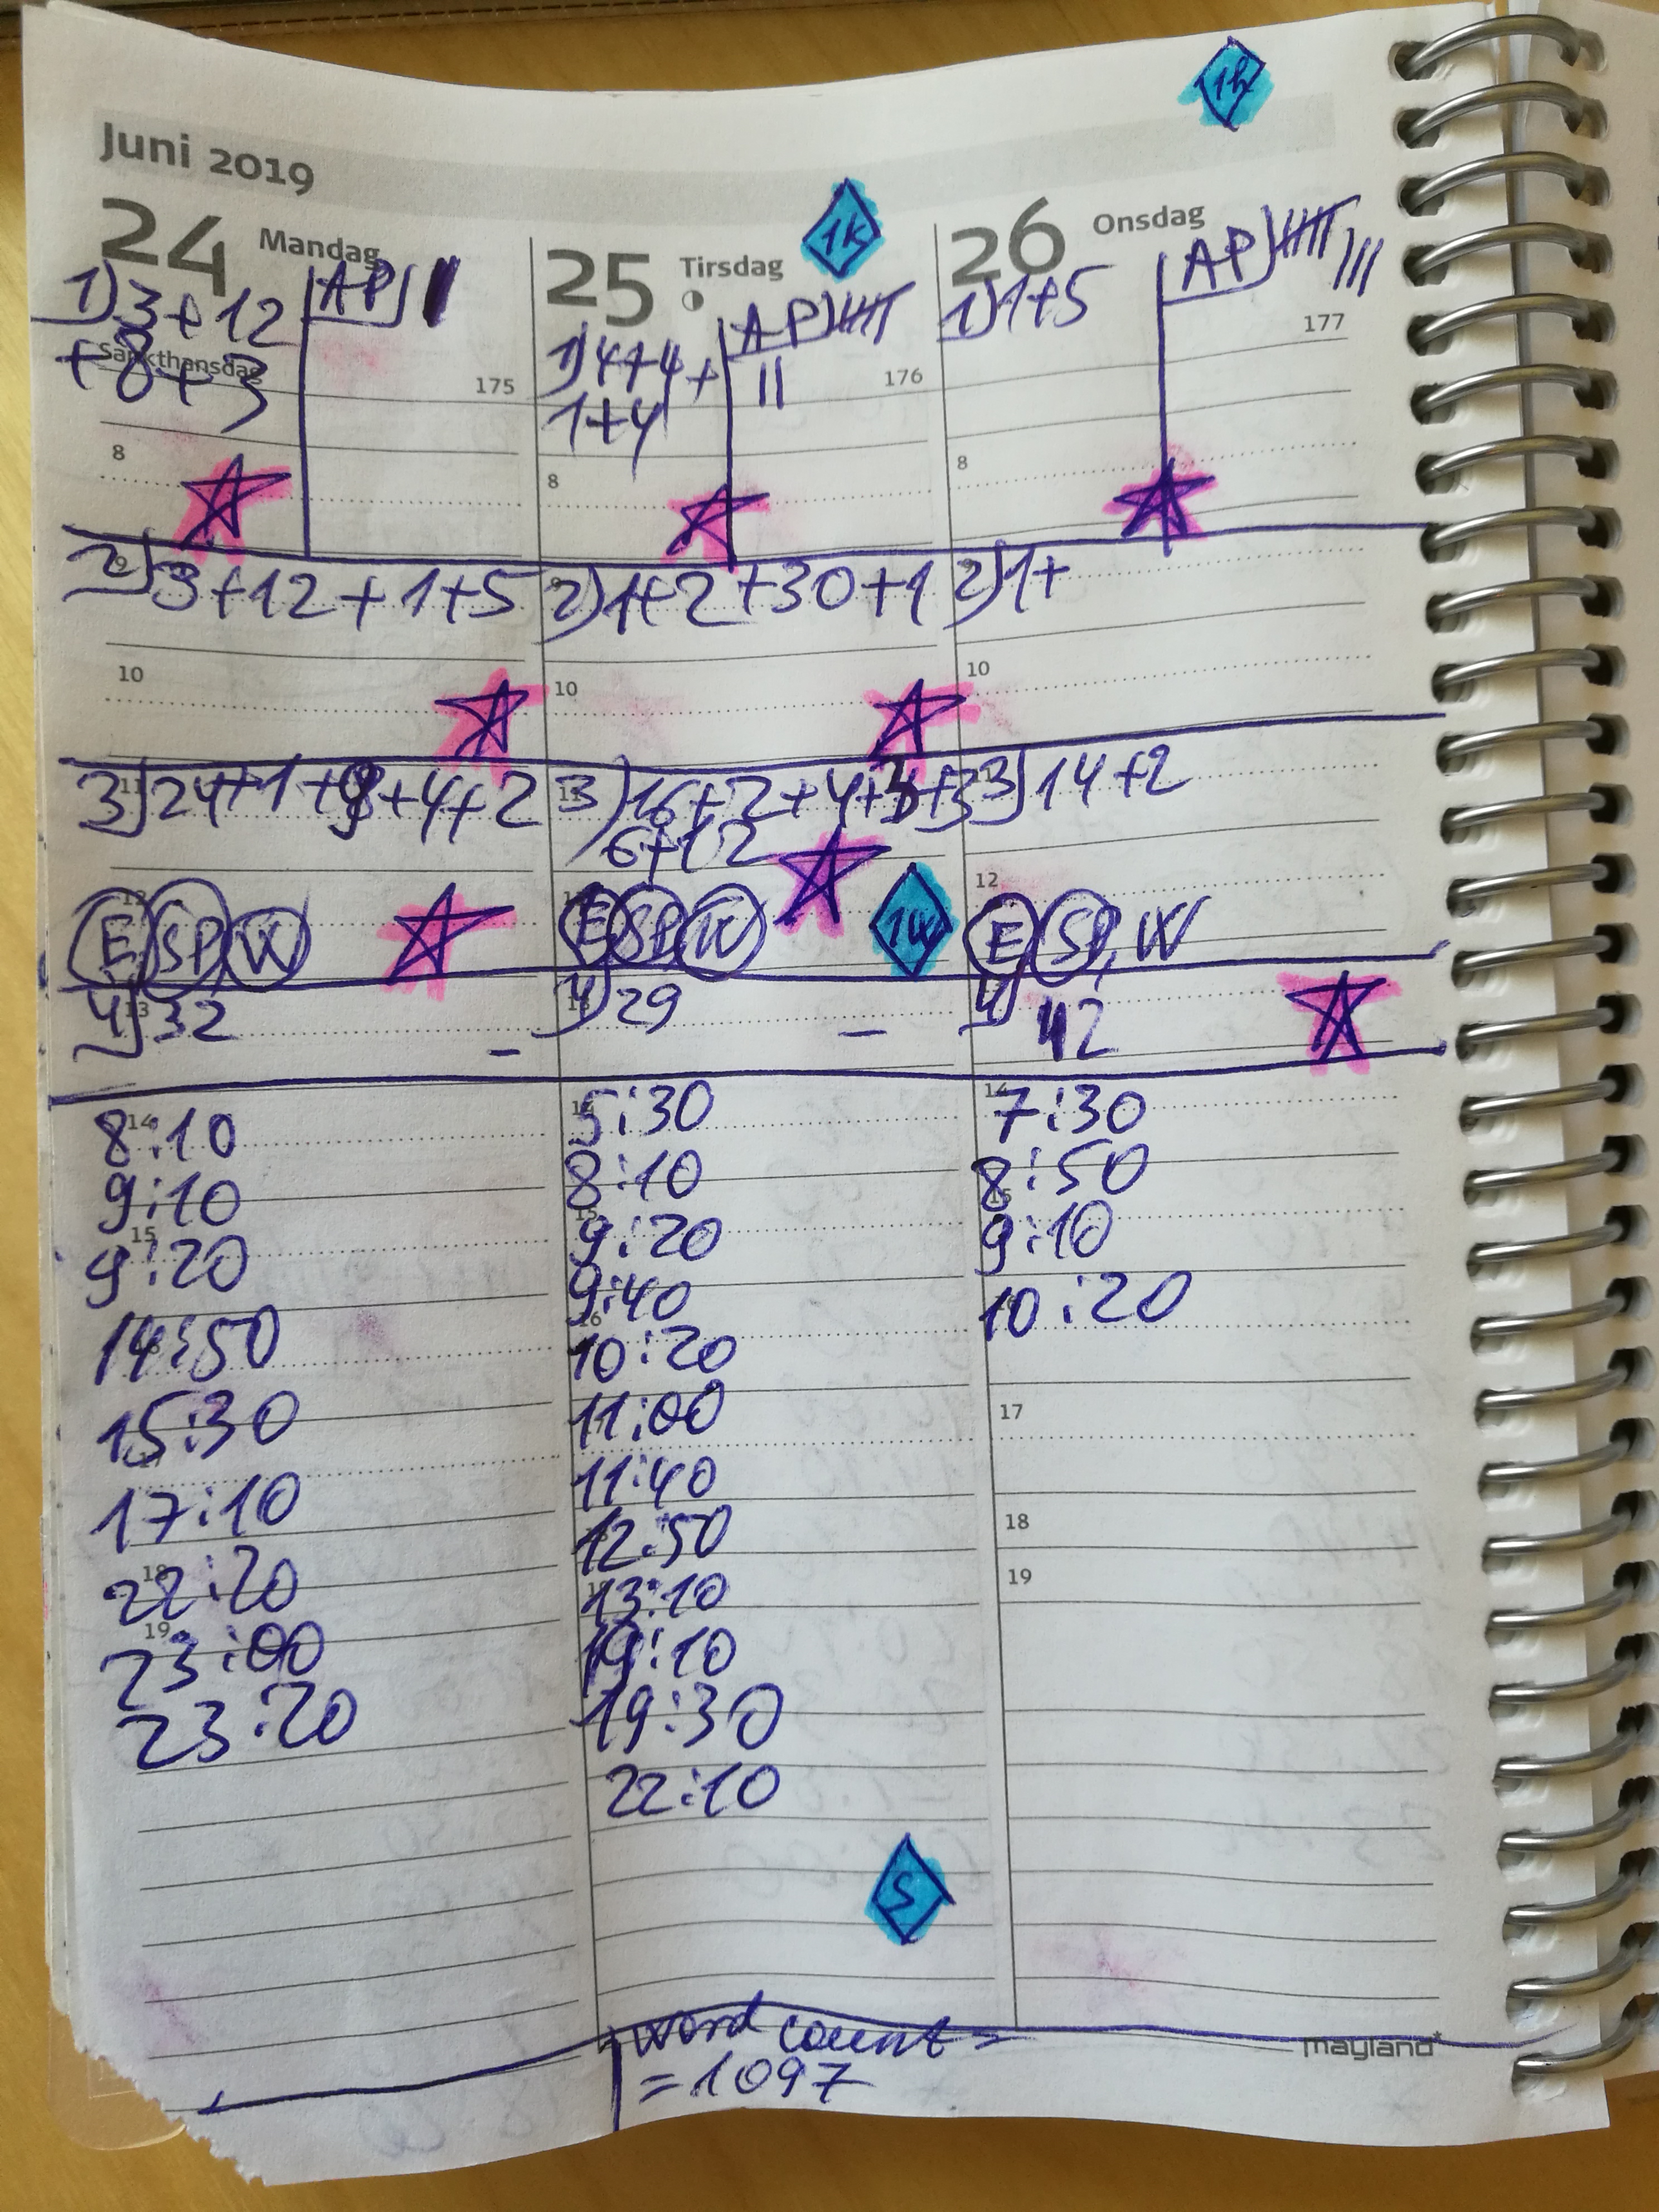 1h
Juni 2019
24 Mandag
1) 3+12
+8+3
AP
Sankthansdag
175
8
2) 3+12+1+5
10
3) 24+1+9+4+2
E SP W
13
4) 32
-
14
8:10
9:10
15
9:20
14:50
15:30
17:10
18
22:20
19
23:00
23:20
1k
25 Tirsdag
1) 4+4+
1+4
AP 卌
II
176
8
2) 1+2+30+1
10
3) 16+2+4+3+3
6+12
E SP W
4) 29
-
5:30
8:10
9:20
9:40
10:20
11:00
11:40
12:50
13:10
19:10
19:30
22:10
S
word count =
= 1097
26 Onsdag
1) 1+5
AP 卌 III
177
8
2) 1+
10
3) 14+2
12
E SP, W
4) 42
14
7:30
8:50
15
9:10
10:20
17
18
19
mayland